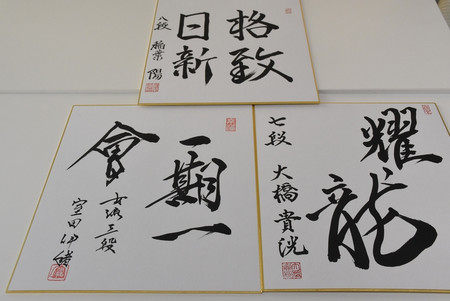 格致
日新
八段 稲葉 陽
一期一
會
女流三段
室田伊緒
耀
龍
七段 大橋貴洸